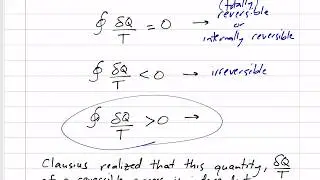 (totally)
∮ δQ/T = 0 → reversible
or
internally reversible
∮ δQ/T < 0 → irreversible
∮ δQ/T > 0 →
Clausius realized that this quantity, δQ/T
of a reversible process is